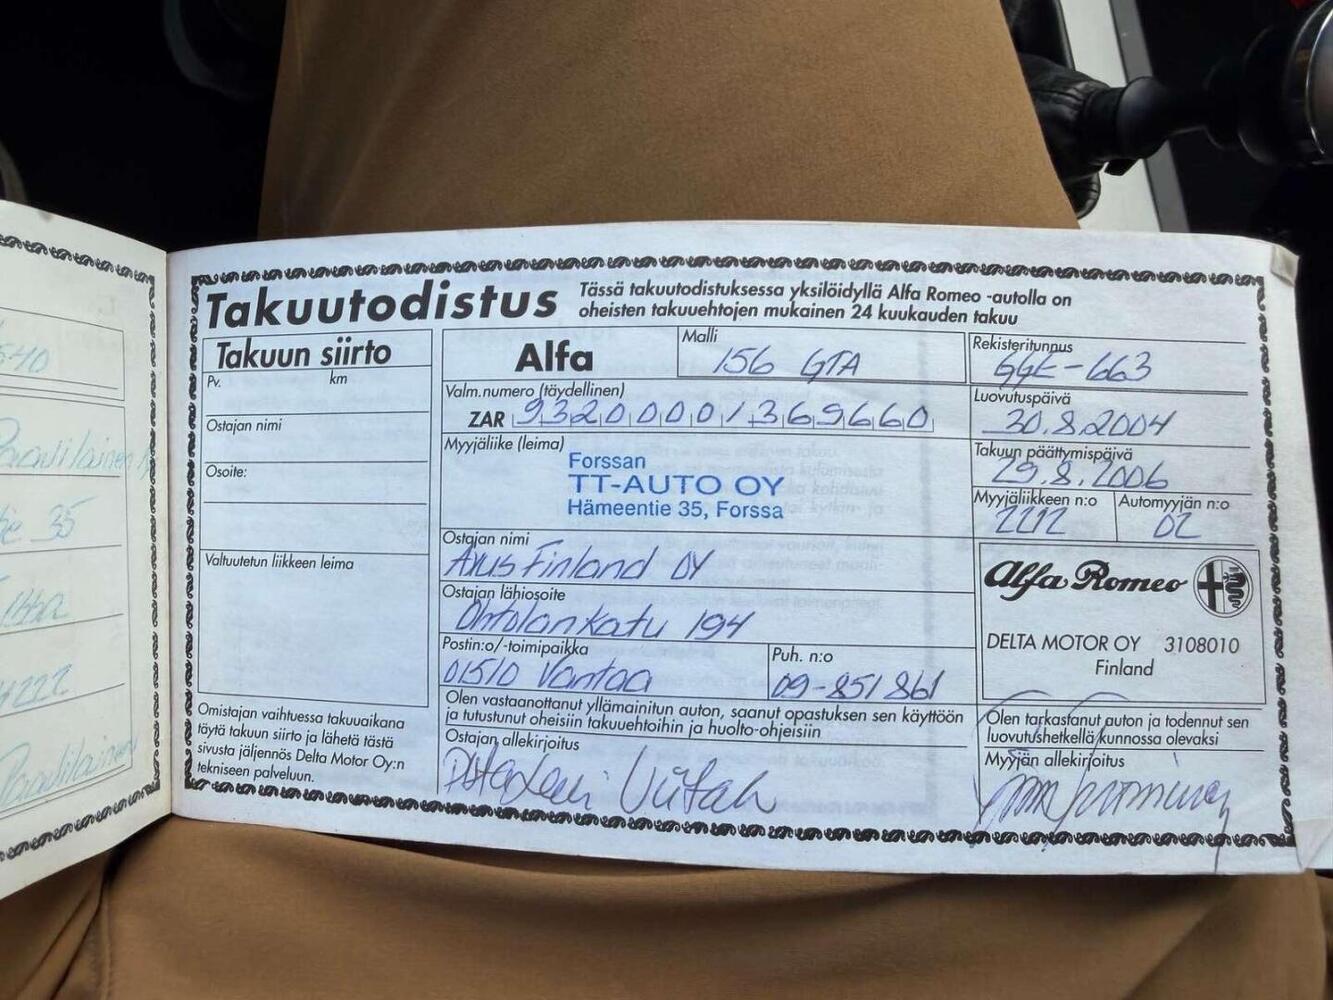 Takuutodistus
Tässä takuutodistuksessa yksilöidyllä Alfa Romeo -autolla on
oheisten takuuehtojen mukainen 24 kuukauden takuu
Takuun siirto
Pv. km
Ostajan nimi
Osoite:
Valtuutetun liikkeen leima
Omistajan vaihtuessa takuuaikana
täytä takuun siirto ja lähetä tästä
sivusta jäljennös Delta Motor Oy:n
tekniseen palveluun.
Alfa
Malli
156 GTA
Valm.numero (täydellinen)
ZAR 93200001369660
Myyjäliike (leima)
Forssan
TT-AUTO OY
Hämeentie 35, Forssa
Ostajan nimi
Finland OY
Ostajan lähiosoite
194
Postin:o/-toimipaikka
01510 Vantaa
Puh. n:o
09-851 861
Olen vastaanottanut yllämainitun auton, saanut opastuksen sen käyttöön
ja tutustunut oheisiin takuuehtoihin ja huolto-ohjeisiin
Ostajan allekirjoitus
Rekisteritunnus
GGE-663
Luovutuspäivä
30.8.2004
Takuun päättymispäivä
29.8.2006
Myyjäliikkeen n:o Automyyjän n:o
2212 02
Alfa Romeo
DELTA MOTOR OY 3108010
Finland
Olen tarkastanut auton ja todennut sen
luovutushetkellä kunnossa olevaksi
Myyjän allekirjoitus
35